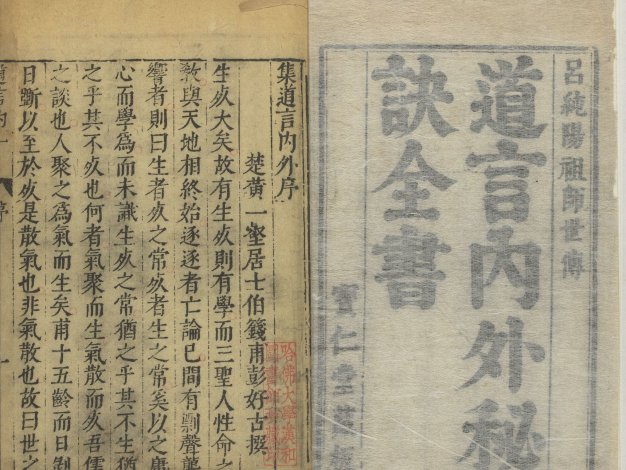 呂純陽祖師世傳
道言內外秘
訣全書
寶仁堂
集道言內外序
楚黃一壑居士伯籛甫彭好古撰
生死大矣故有生死則有學而三聖人性命之
教與天地相終始逐逐者亡論已間有剽聲襲
響者則曰生者死之常死者生之常奚以之廑
心而學為而未識生死之常猶之乎其不生猶
之乎其不死也何者氣聚而生氣散而死吾儒
之談也人聚之為氣而生矣甫十五齡而日剝
日斲以至於死是散氣也非氣散也故曰世之
道言內一
序
一
哈佛大學漢和
圖書館